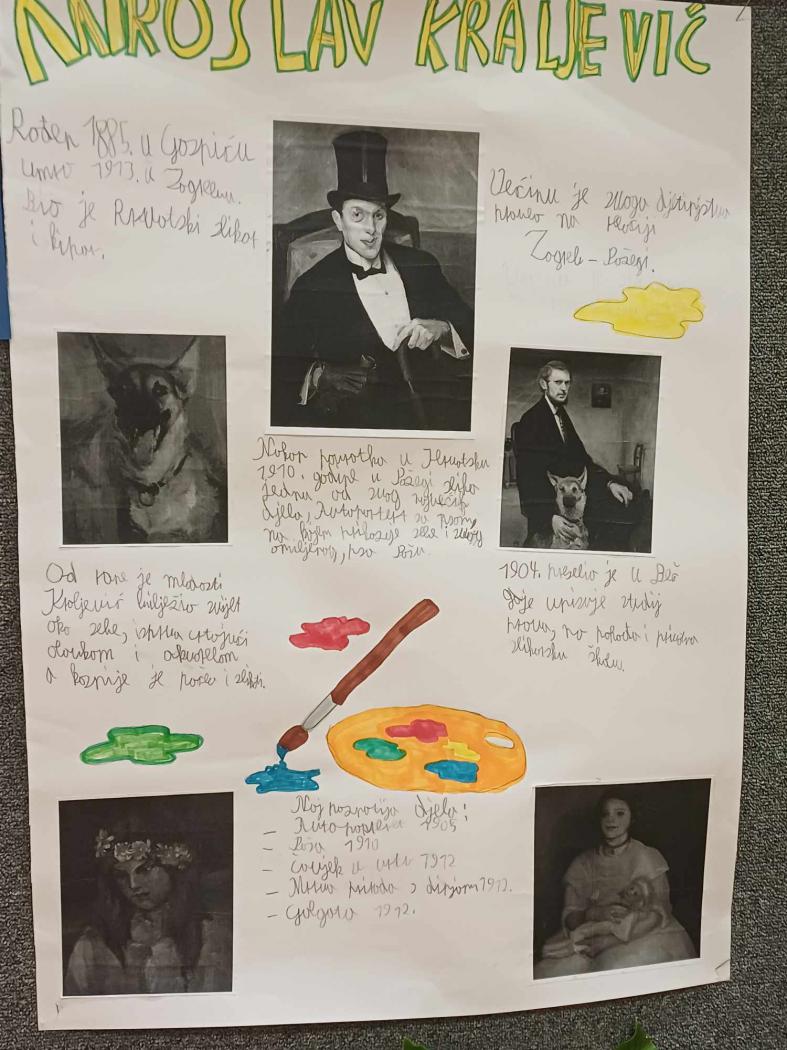 MIROSLAV KRALJEVIČ
Rođen 1885. u Gospiću
umro 1913. u Zagrebu.
Bio je hrvatski slikar
i kipar.
Većinu je svoga djetinjstva
proveo na
Zagreb - Požegi.
Nakon povratka u Hrvatsku
1910. godine u Požegi slika
jedno od svog najvećih
djela, Autoportert sa psom
na kojem prikazuje sebe i svog
omiljenog, psa Požu
Od rane je mladosti
Kraljević bilježio svijet
oko sebe, isprva crtajući
olovkom i akvarelom
a kasnije je počeo i slikati.
1904. preselio je u Beč
gdje upisuje studij
prava, no pohađa i privatnu
slikarsku školu.
Naj poznatija djela:
- Autoportret 1905
- Poža 1910
- Čovjek u vrtu 1912
- Mrtva priroda s dinjom 1912.
- Golgota 1912.